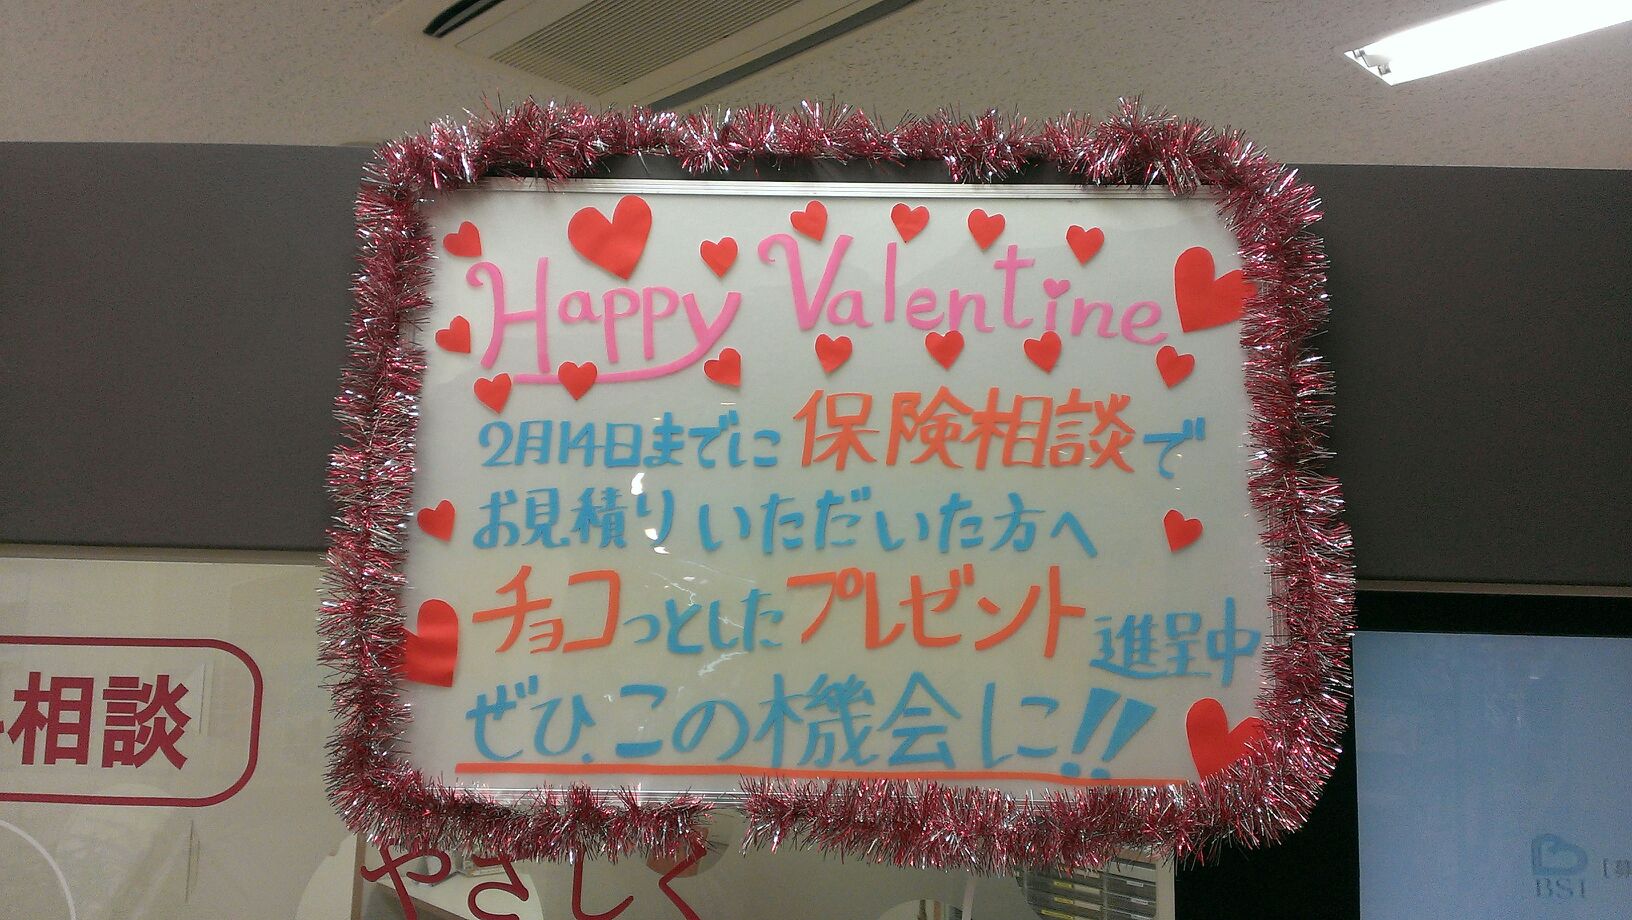 Happy Valentine
2月14日までに保険相談で
お見積りいただいた方へ
チョコっとしたプレゼント進呈中
ぜひ、この機会に!!
相談
やさしく
BSI